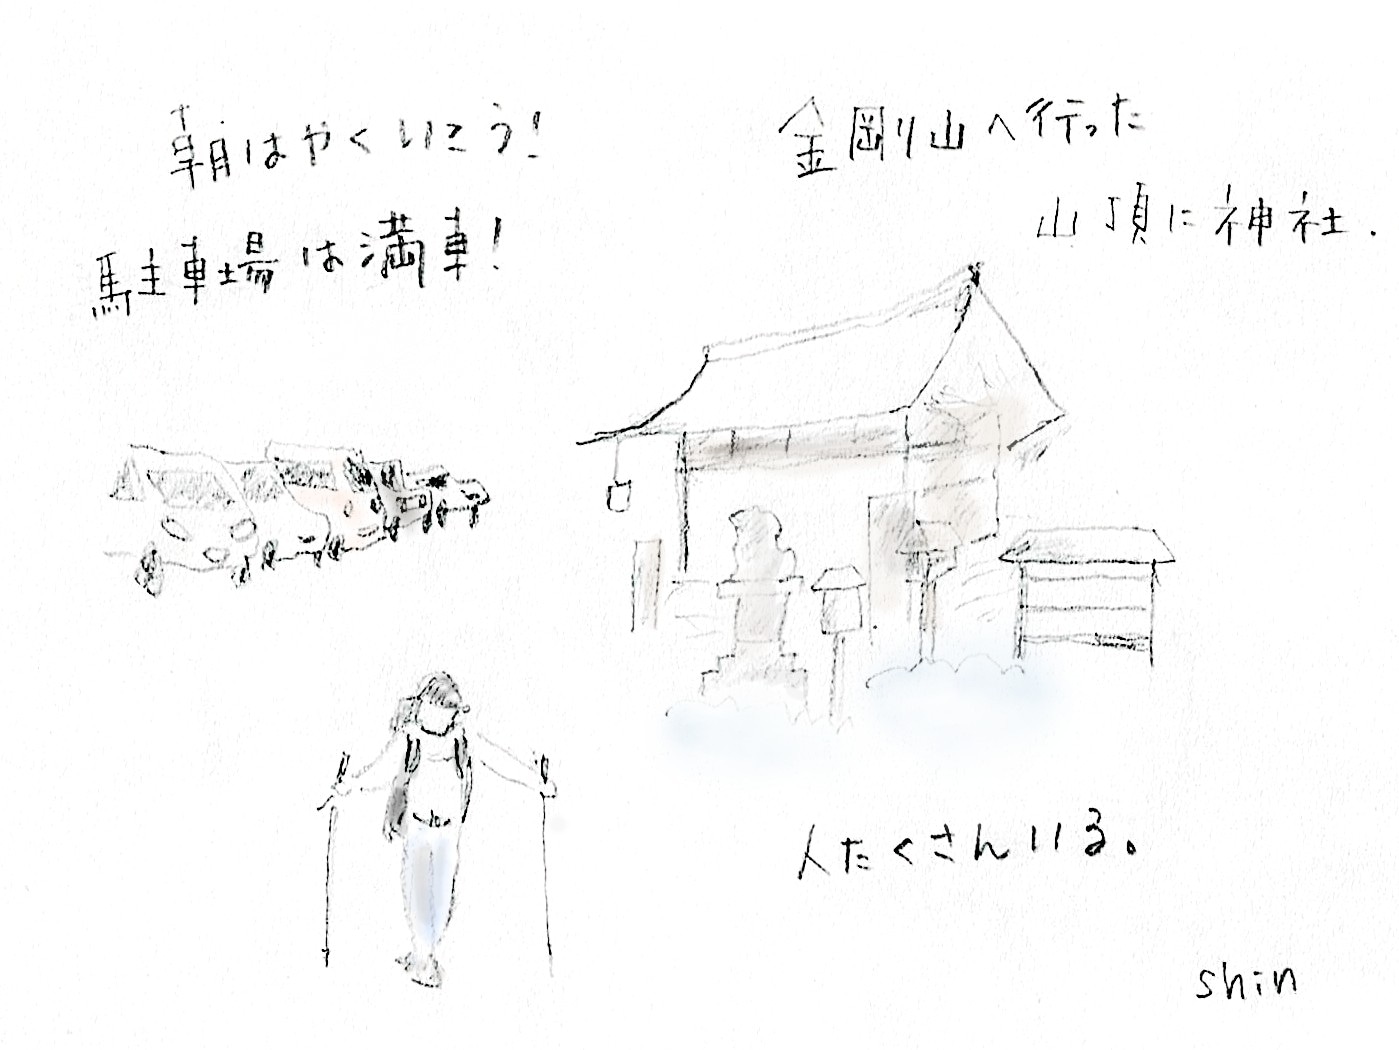 朝はやくいこう!
駐車場は満車!
金剛山へ行った
山頂に神社.
人たくさんいる。
shin